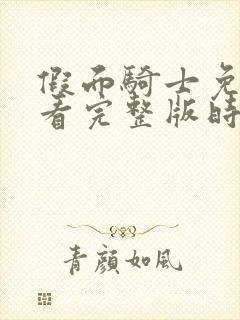 假面騎士免
看完整版時
青顏如風